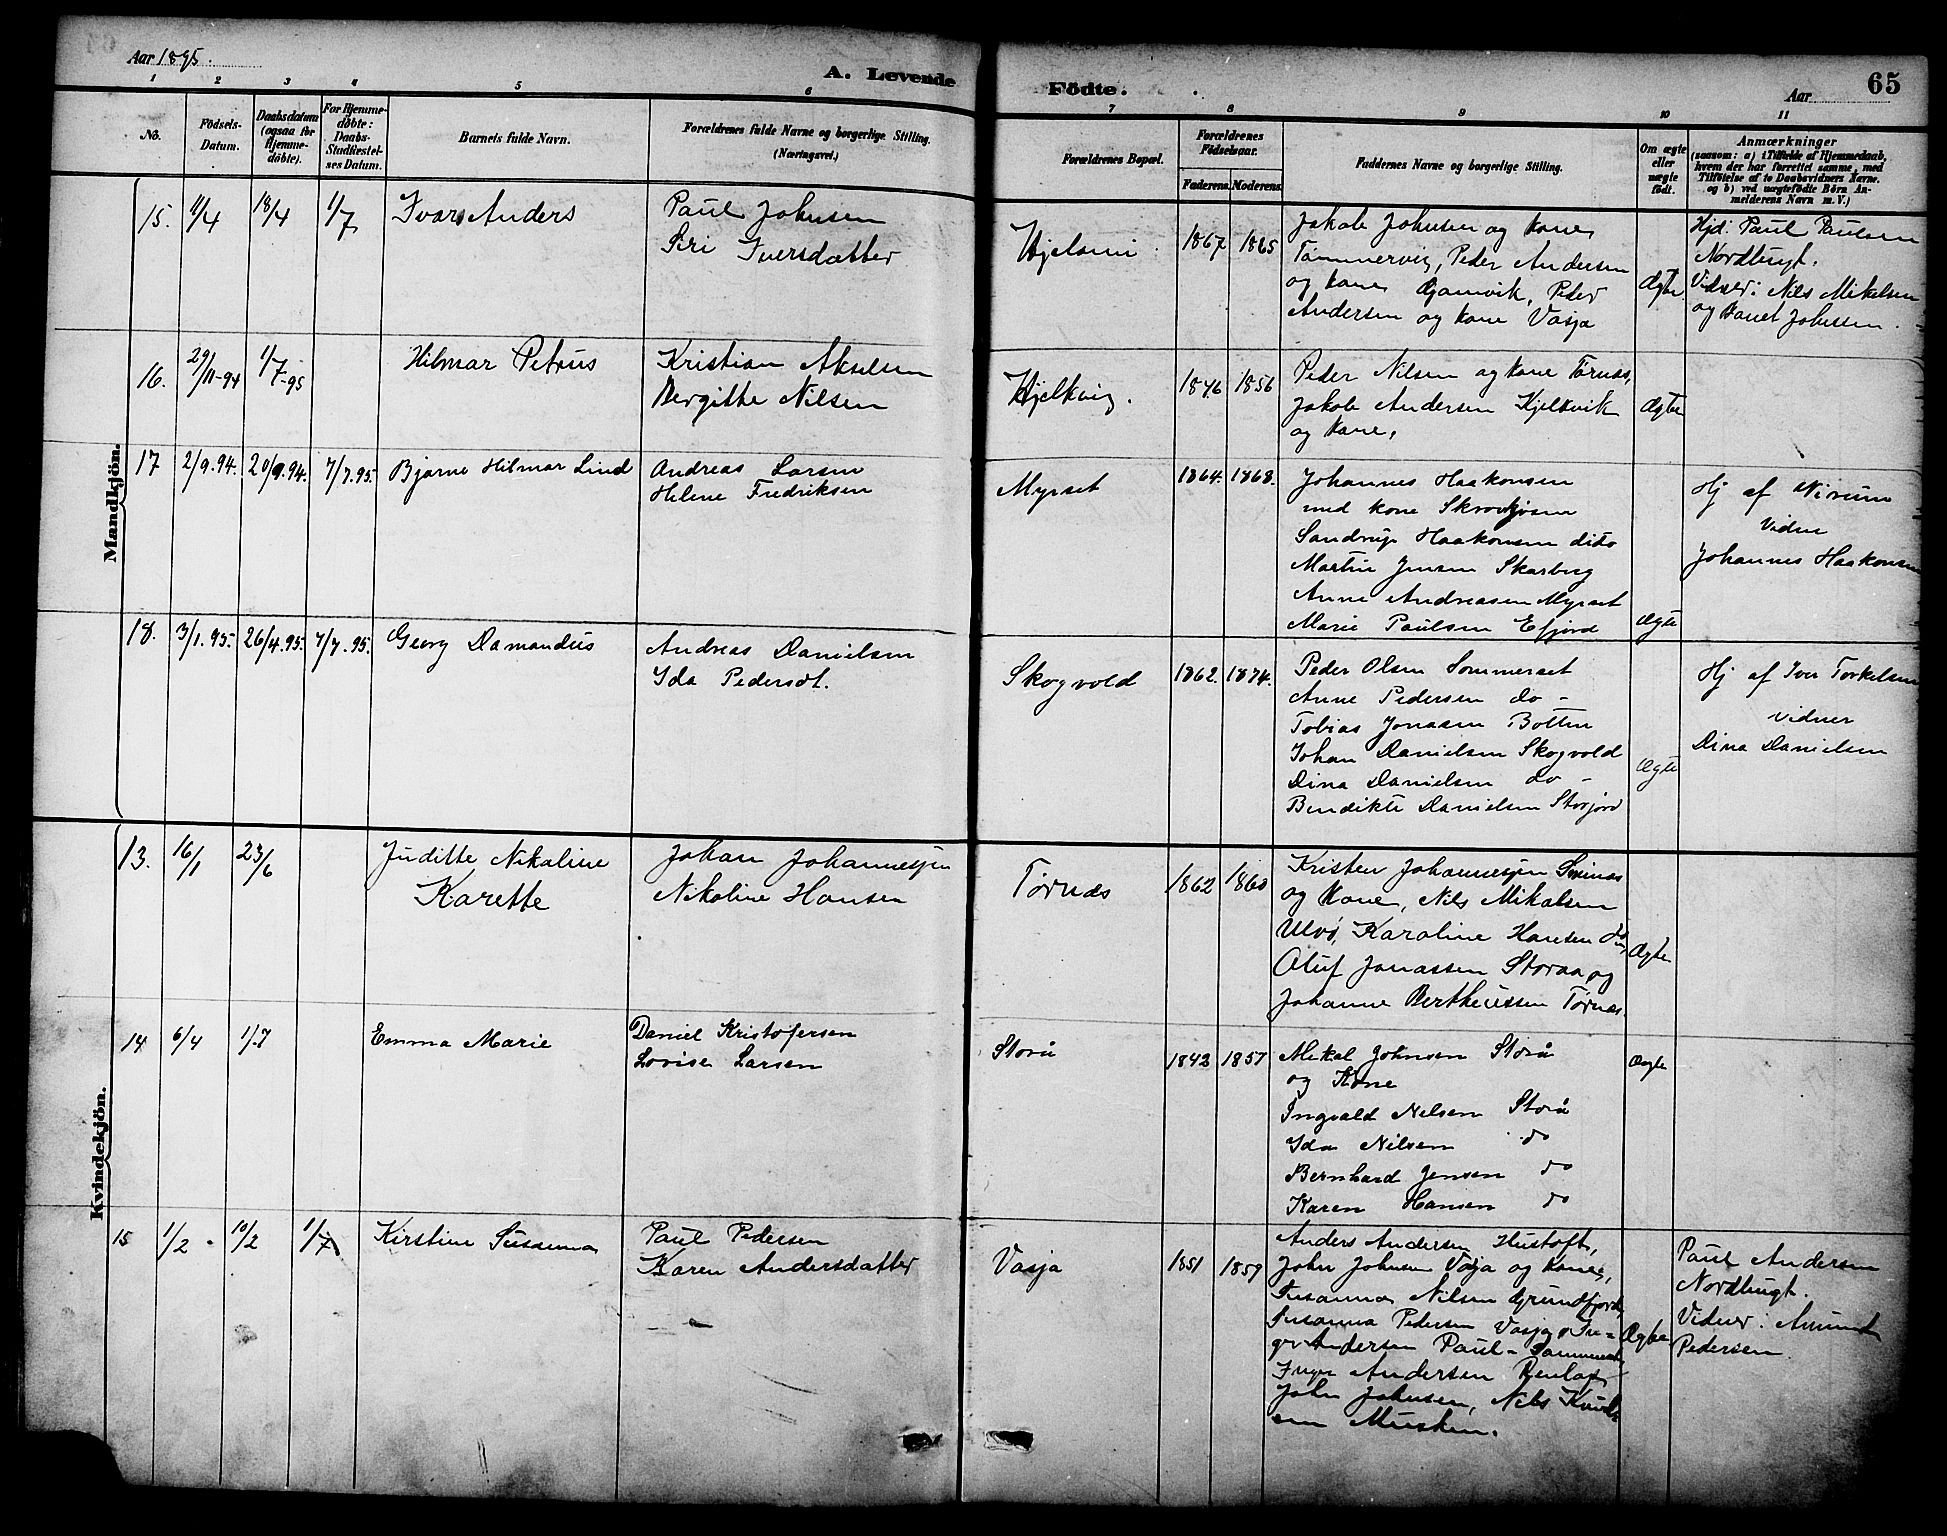 Aar 1895.
A. Levende Födte.
Aar
65
1 2 3 4 5 6 7 8 9 10 11
No.
Födsels-Datum.
Daabsdatum (ogsaa for Hjemme-döbte).
For Hjemme-döbte: Daabs-Stadfæstel-ses Datum.
Barnets fulde Navn.
Forældrenes fulde Navne og borgerlige Stilling.
(Næringsvei.)
Forældrenes Bopæl.
Forældrenes Födselsaar.
Faderens. Moderens.
Faddernes Navne og borgerlige Stilling.
Om ægte eller uægte födt.
Anmærkninger
(saasom: a) i Tilfælde af Hjemmedaab,
hvem der har forrettet samme, med
Tilföielse af to Daabsvidners Navne,
og b) ved uægtefödte Börn An-
melderens Navn m. V.)
Mandkjön.
15. 11/4 18/4 1/7 Ivar Anders
Paul Johnsen
Siri Iversdatter
1867 1865
Jakob Johnsen og kone
Tømmervig, Peder Andersen
og kone Gjømvik, Peder
Andersen og kone Vasja
Ægte.
Hjd: Paul Paulsen
Nordbugt.
Vidner: Nils Mikelsen
og Johnsen.
16. 29/11-94 1/7-95 Hilmar Petrus
Kristian Akselsen
Bergitte Nilsen
Kjelkvig.
1846 1856
Peder Nilsen og kone Tørnæs,
Jakob Andersen Kjelkvik
og kone,
Ægte
17 2/9.94. 20/9.94. 7/7.95. Bjarne Hilmar Lind
Andreas Larsen
Helene Fredriksen
Myrset
1864. 1868.
Johannes Haakonsen
med kone Skrovkjøsen
Haakonsen dito
Martin Jensen Skarberg
Anne Andreasen Myrset
Marie Paulsen Efjord
Ægte
Hj af
Vidne
Johannes Haakonsen
18. 3/1.95. 26/4.95. 7/7.95. Georg Damandus
Andreas Danielsen
Ida Pedersdt.
Skogvold
1862. 1874.
Peder Olsen Sommerset
Anne Pedersen do -
Tobias Jonasen Botten
Johan Danielsen Skogvold
Dina Danielsen do -
Bendikte Danielsen Storjord
Ægte
Hj af Iver Torkelsen
vidner
Dina Danielsen
Kvindekjön.
13. 16/1 23/6 Juditte Nikoline
Karette
Johan Johannesjen
Nikoline Hansen
Tørnæs
1862 1860
Kristen Johannesjen
og Kone, Nils Mikalsen
Ulvø, Karoline Hansen do,
Oluf Jonassen Storaa og
Johanne Bertheussen Tørnæs.
Ægte
14 6/4 1/7 Emma Marie
Daniel Kristofersen
Lovise Larsen
Storå
1842 1857
Mikal Johnsen Storå
og Kone
Ingvald Nilsen Storå
Ida Nilsen do
Bernhard Jensen do
Karen Hansen do
Ægte
15 1/2 - 10/2 1/7 Kirstine Susanna
Paul Pedersen
Karen Andersdatter
Vasja
1851 1859
Anders Andersen Hustoft,
John Johnsen Vasja og kone,
Susanna Nilsen Grundfjord,
Susanna Pedersen Vasja, In-
ger Andersen Paul-
Inger Andersen
John Johnsen, Nils Knud-
sen Musken.
Ægte
Paul Andersen
Nordbugt.
Vidner: Amund
Pedersen